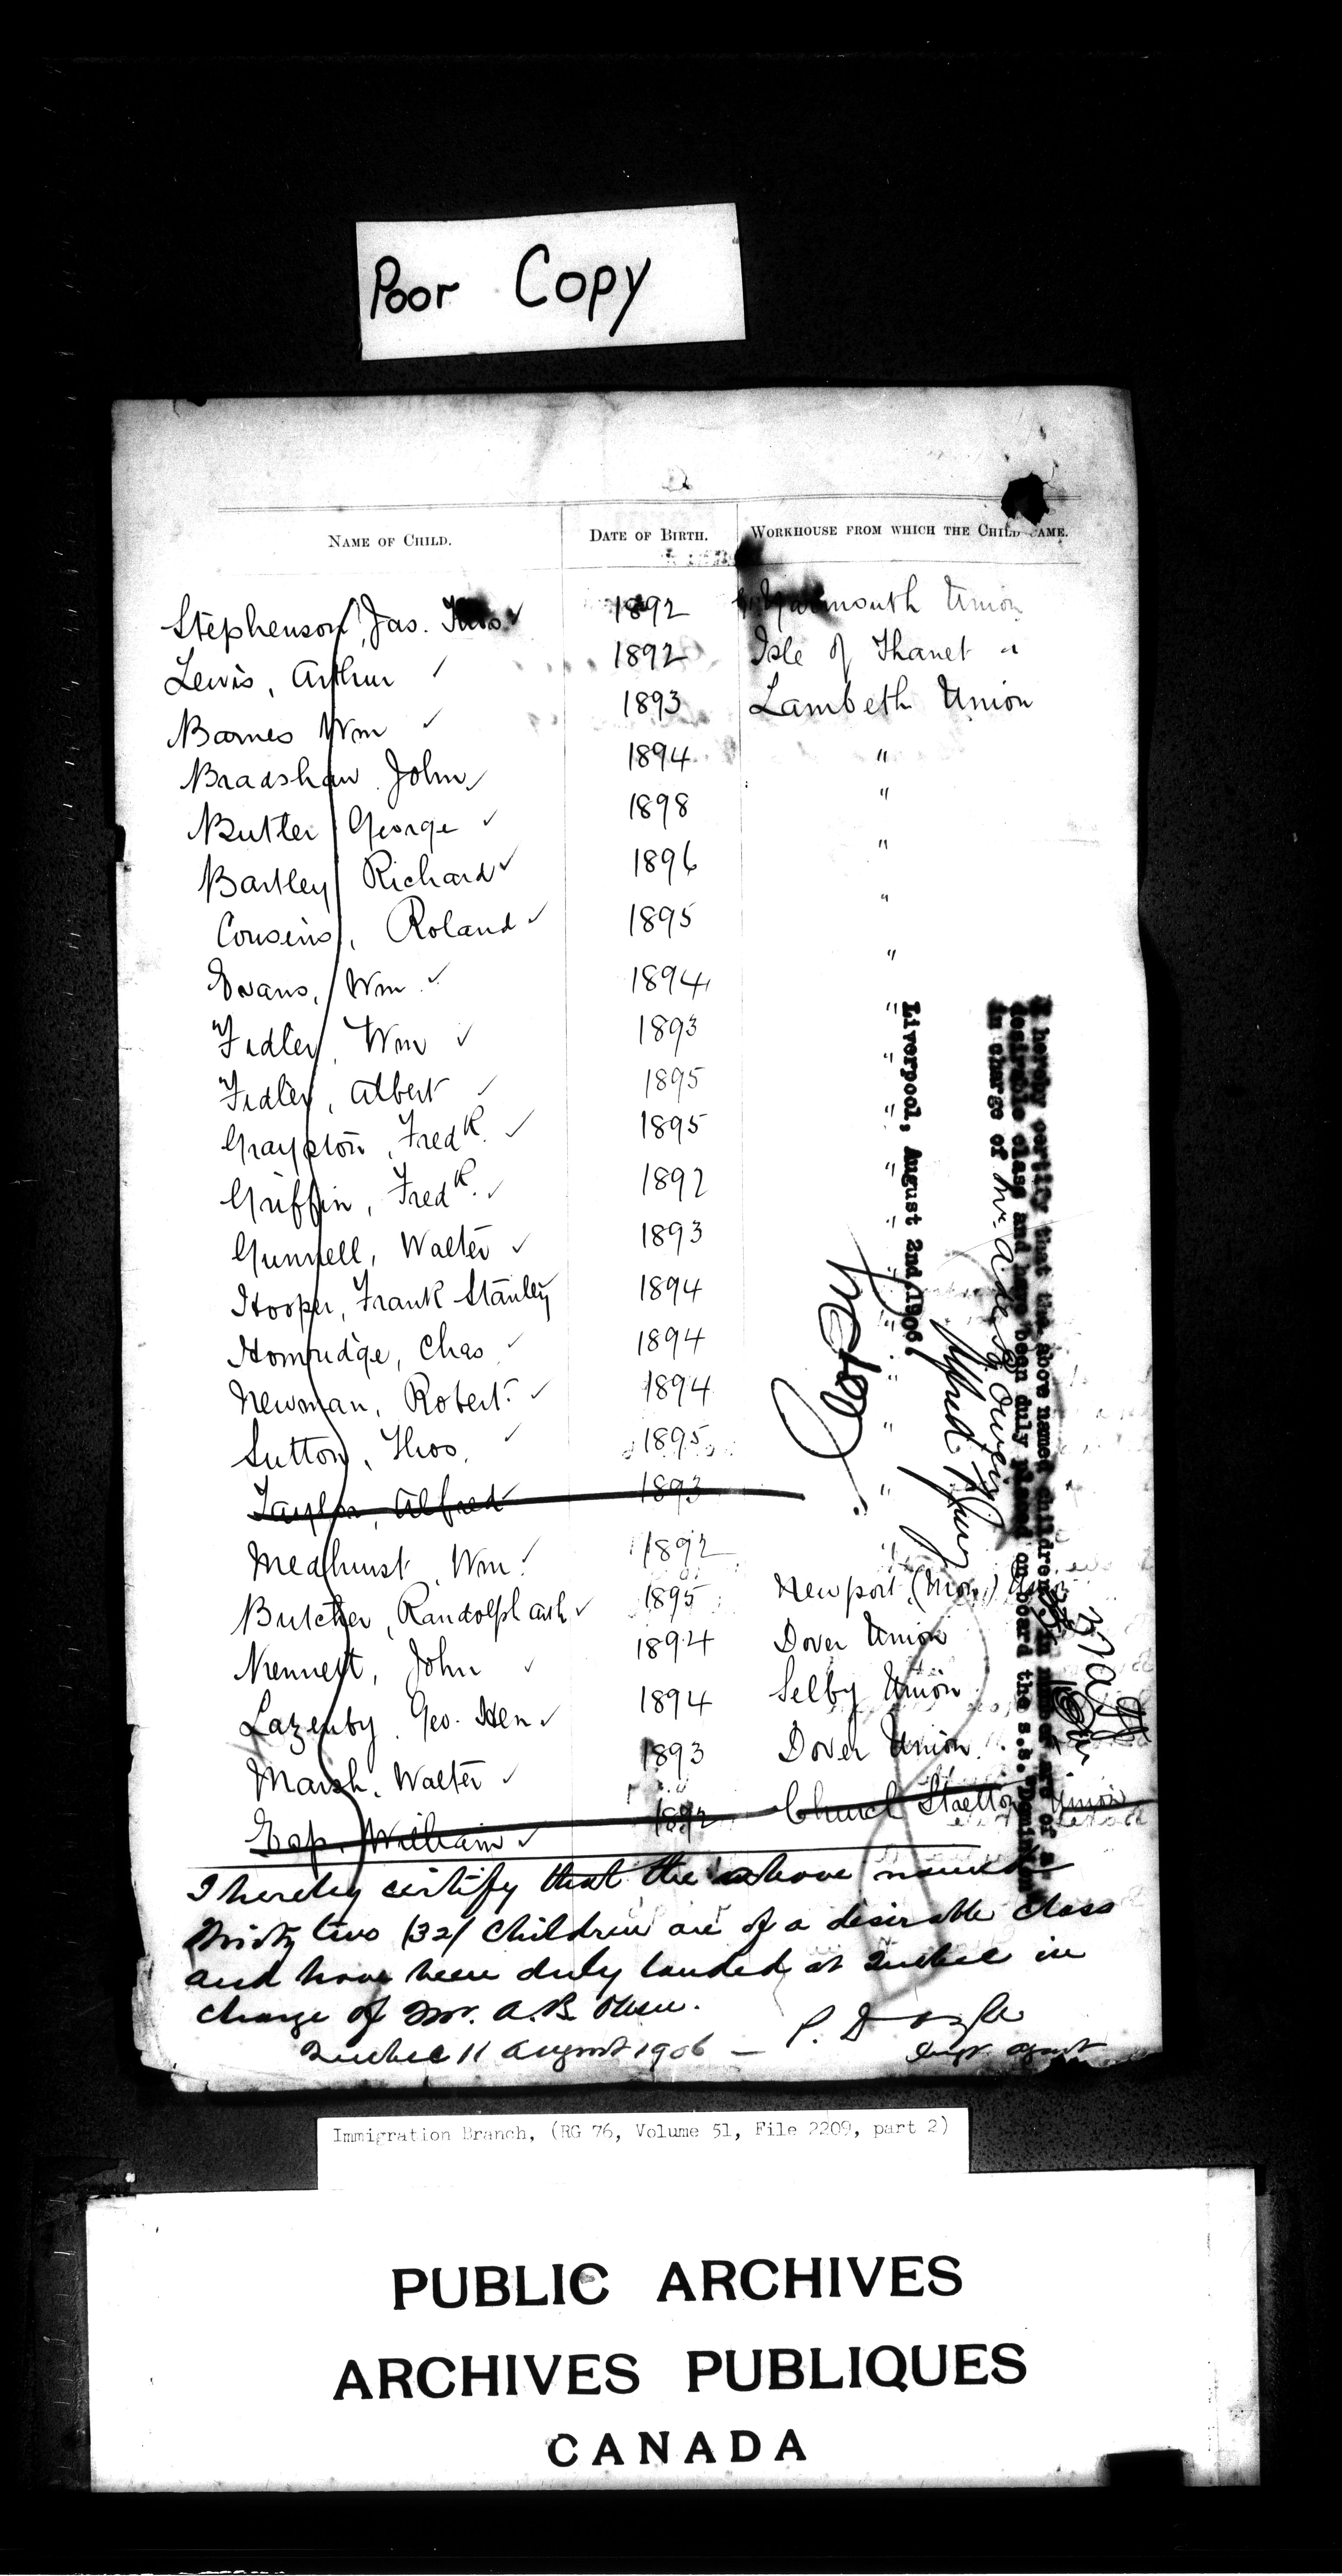 Poor Copy
NAME OF CHILD. DATE OF BIRTH. WORKHOUSE FROM WHICH THE CHILD CAME.
Stephenson, Jas. Thos. ✓ 1892 Yarmouth Union
Lewis, Arthur ✓ 1892 Isle of Thanet "
Barnes Wm ✓ 1893 Lambeth Union
Bradshaw John ✓ 1894 "
Butler George ✓ 1898 "
Bartley Richard ✓ 1896 "
Cousins, Roland ✓ 1895 "
Evans, Wm ✓ 1894 "
Fidler, Wm ✓ 1893 "
Fidler, Albert ✓ 1895 "
Grayston, Fredk. ✓ 1895 "
Griffin, Fredk. ✓ 1892 "
Gunnell, Walter ✓ 1893 "
Hooper, Frank Stanley 1894 "
Homridge, Chas ✓ 1894 "
Newman, Robert. ✓ 1894 "
Sutton, Thos. ✓ 1895 "
Taylor, Alfred 1893 "
Medhurst, Wm. ✓ 1892 "
Butcher, Randolph ✓ 1895 Newport (Mon.) Union
Kennett, John ✓ 1894 Dover Union
Lazenby, Geo. Hen ✓ 1894 Selby Union
Marsh, Walter ✓ 1893 Dover Union
William ✓ 1892 Church Stretton Union
I hereby certify that the above named
thirty two (32) children are of a desirable class
and have been duly landed at Quebec in
charge of Mr. A. B. Owen.
Quebec 11 August 1906 — P. Doyle
Agent
I hereby certify that the above named children in number are of a
desirable class and have been duly placed on board the s.s. "Dominion"
in charge of Mr. A. de B. Owen
Liverpool, August 2nd, 1906
Immigration Branch, (RG 76, Volume 51, File 2209, part 2)
PUBLIC ARCHIVES
ARCHIVES PUBLIQUES
CANADA